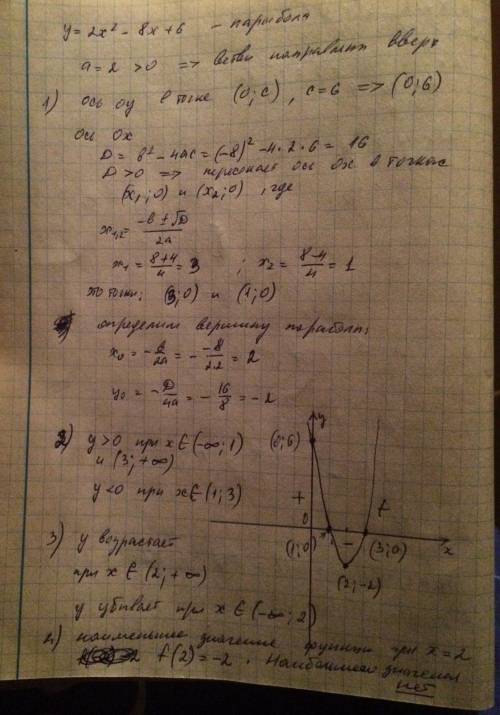 y = 2x² - 8x + 6 - парабола
a = 2 > 0 => ветви направлены вверх
1) ось oy в точке (0; c), c = 6 => (0; 6)
ось ox
D = b² - 4ac = (-8)² - 4·2·6 = 16
D > 0 => пересекает ось ox в точках
(x₁; 0) и (x₂; 0), где
x₁,₂ = (-b ± √D)/2a
x₁ = (8+4)/4 = 3 ; x₂ = (8-4)/4 = 1
это точки: (3; 0) и (1; 0)
определим вершину параболы:
x₀ = -b/2a = - -8/2·2 = 2
y₀ = -D/4a = -16/8 = -2
2) y > 0 при x ∈ (-∞; 1)
и (3; +∞)
y < 0 при x ∈ (1; 3)
3) y возрастает
при x ∈ (2; +∞)
y убывает при x ∈ (-∞; 2)
4) наименьшее значение функции при x = 2
f(2) = -2. Наибольшего значения
нет
y
(0; 6)
+
+
0
-
(1; 0)
(3; 0)
x
(2; -2)